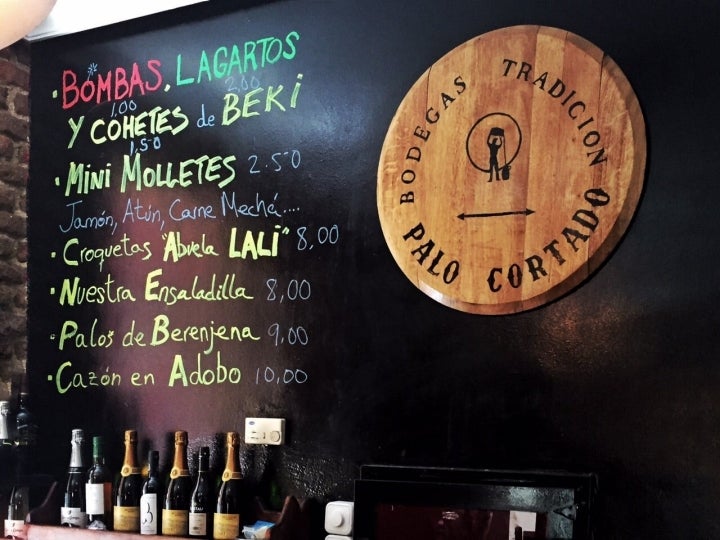 · BOMBAS, LAGARTOS
1,00 2,00
Y COHETES de BEKI
1,50
· MiNi MOLLETES 2.50
Jamón, Atún, Carne Mechá....
· Croquetas "Abuela LALi" 8,00
· Nuestra Ensaladilla 8,00
· Palos de Berenjena 9,00
· Cazón en Adobo 10,00
BODEGAS TRADICION
PALO CORTADO